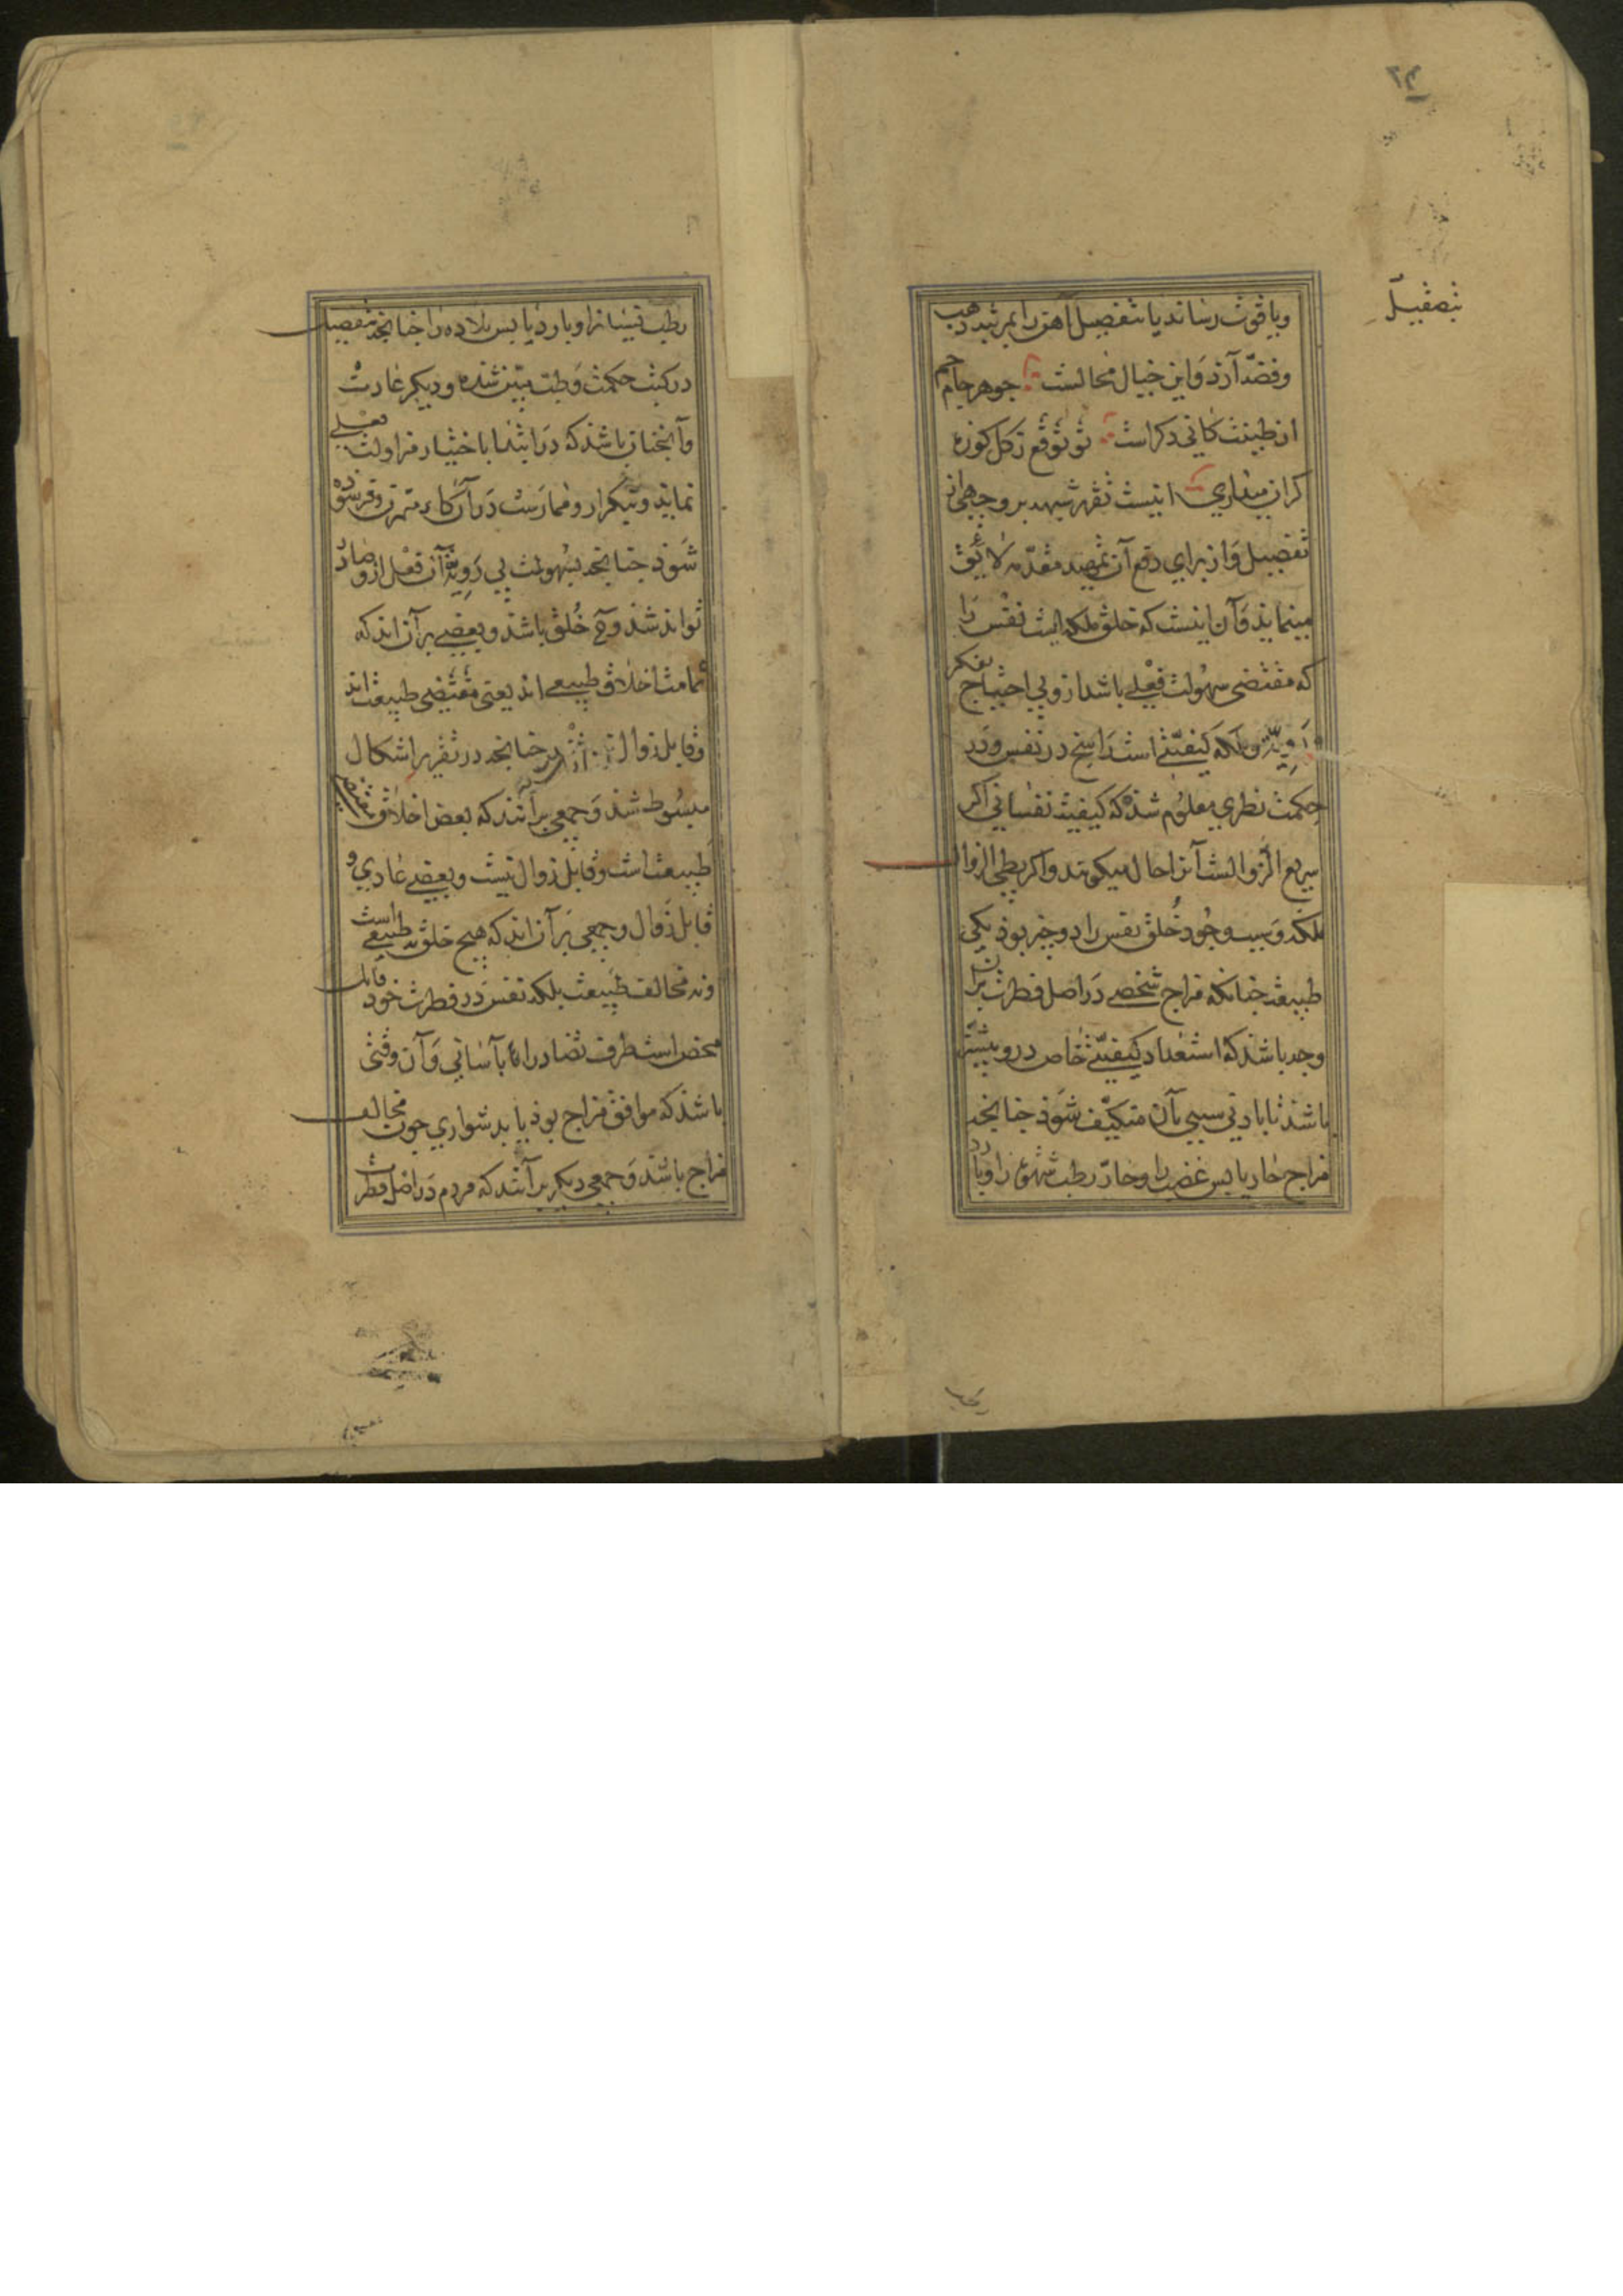 ٢٤
بتصقیل
ویاقوت رساند یا بتفصیل آهن را بمرتبه ذهب
وفضّه آرذ وَاین خیال محالست جوهر جام جم
از طینت کانی دکراست تو توقع زکل کوزه
کران میداری اینست تقریر شبهه بر وجهی از
تفصیل وَاز برای دفع آن تمهید مقدّمه لایق
مینماید وَآن اینست که خلق ملکه ایست نفس را
که مقتضی سهُولت فعلی باشد ازو بی احتیاج بفکر
وَرَوِیّت وملکه کیفیّتی است رَاسخ در نفس ودر
حِکمت نظری معلوُم شذه که کیفیت نفسانی اکر
سریع الزّوالست آنرا حال میکویند واکر بطی الزوال
ملکه وَسبب وجُود خُلق نفس را دوچیز بوذ یکی
طبیعت جنانکه مزاج شخصی دَر اصل فطرت بران
وجه باشذ که استعداد کیفیّتی خاص درو بیشتر
باشذ تا باذنی سببی بآن متکیّف شوَذ جنانجه
مزاج حار یابس غضب را وحارّ رطب شهوة را وبارد
رطب نسیانرا وبارد یابس بلادة را جنانجه بتفصیل
در کتب حکمت وَطبّ مبیّن شذه ودیکر عادت
وآنجنان باشذ که دَر ابتدا باختیار مزاولت فعلی
نماید وبتکرار ومُمارَست دَر آن کار متمرن وفرسوده
شَوذ جنانجه بسُهولت بی رَوِیّة آن فعل ازو صادر
تواند شذ وآن خُلق باشذ وبعضی برآن اند که
تمامت اخلاق طبیعی اند یعنی مقتضی طبیعت اند
وقابل زوال نیستند جنانجه در تقریر اشکال
مبسُوط شذ وَجمعی برآنند که بعض اخلاق مقتضی
طبیعت است وقابل زوال نیست وبعضی عادی و
قابل زَوال وجمعی برآن اند که هیچ خلق نه طبیعی است
ونه مخالف طبیعت بلکه نفس دَر فطرت خود قابل
محض است طرف تضاد را امّا بآسانی وَآن وقتی
باشذ که موافق مزاج بوذ یا بدشواری جون مخالف
مزاج باشذ وَجمعی دیکر برآنند که مردم دَر اصل فطرت
رطب